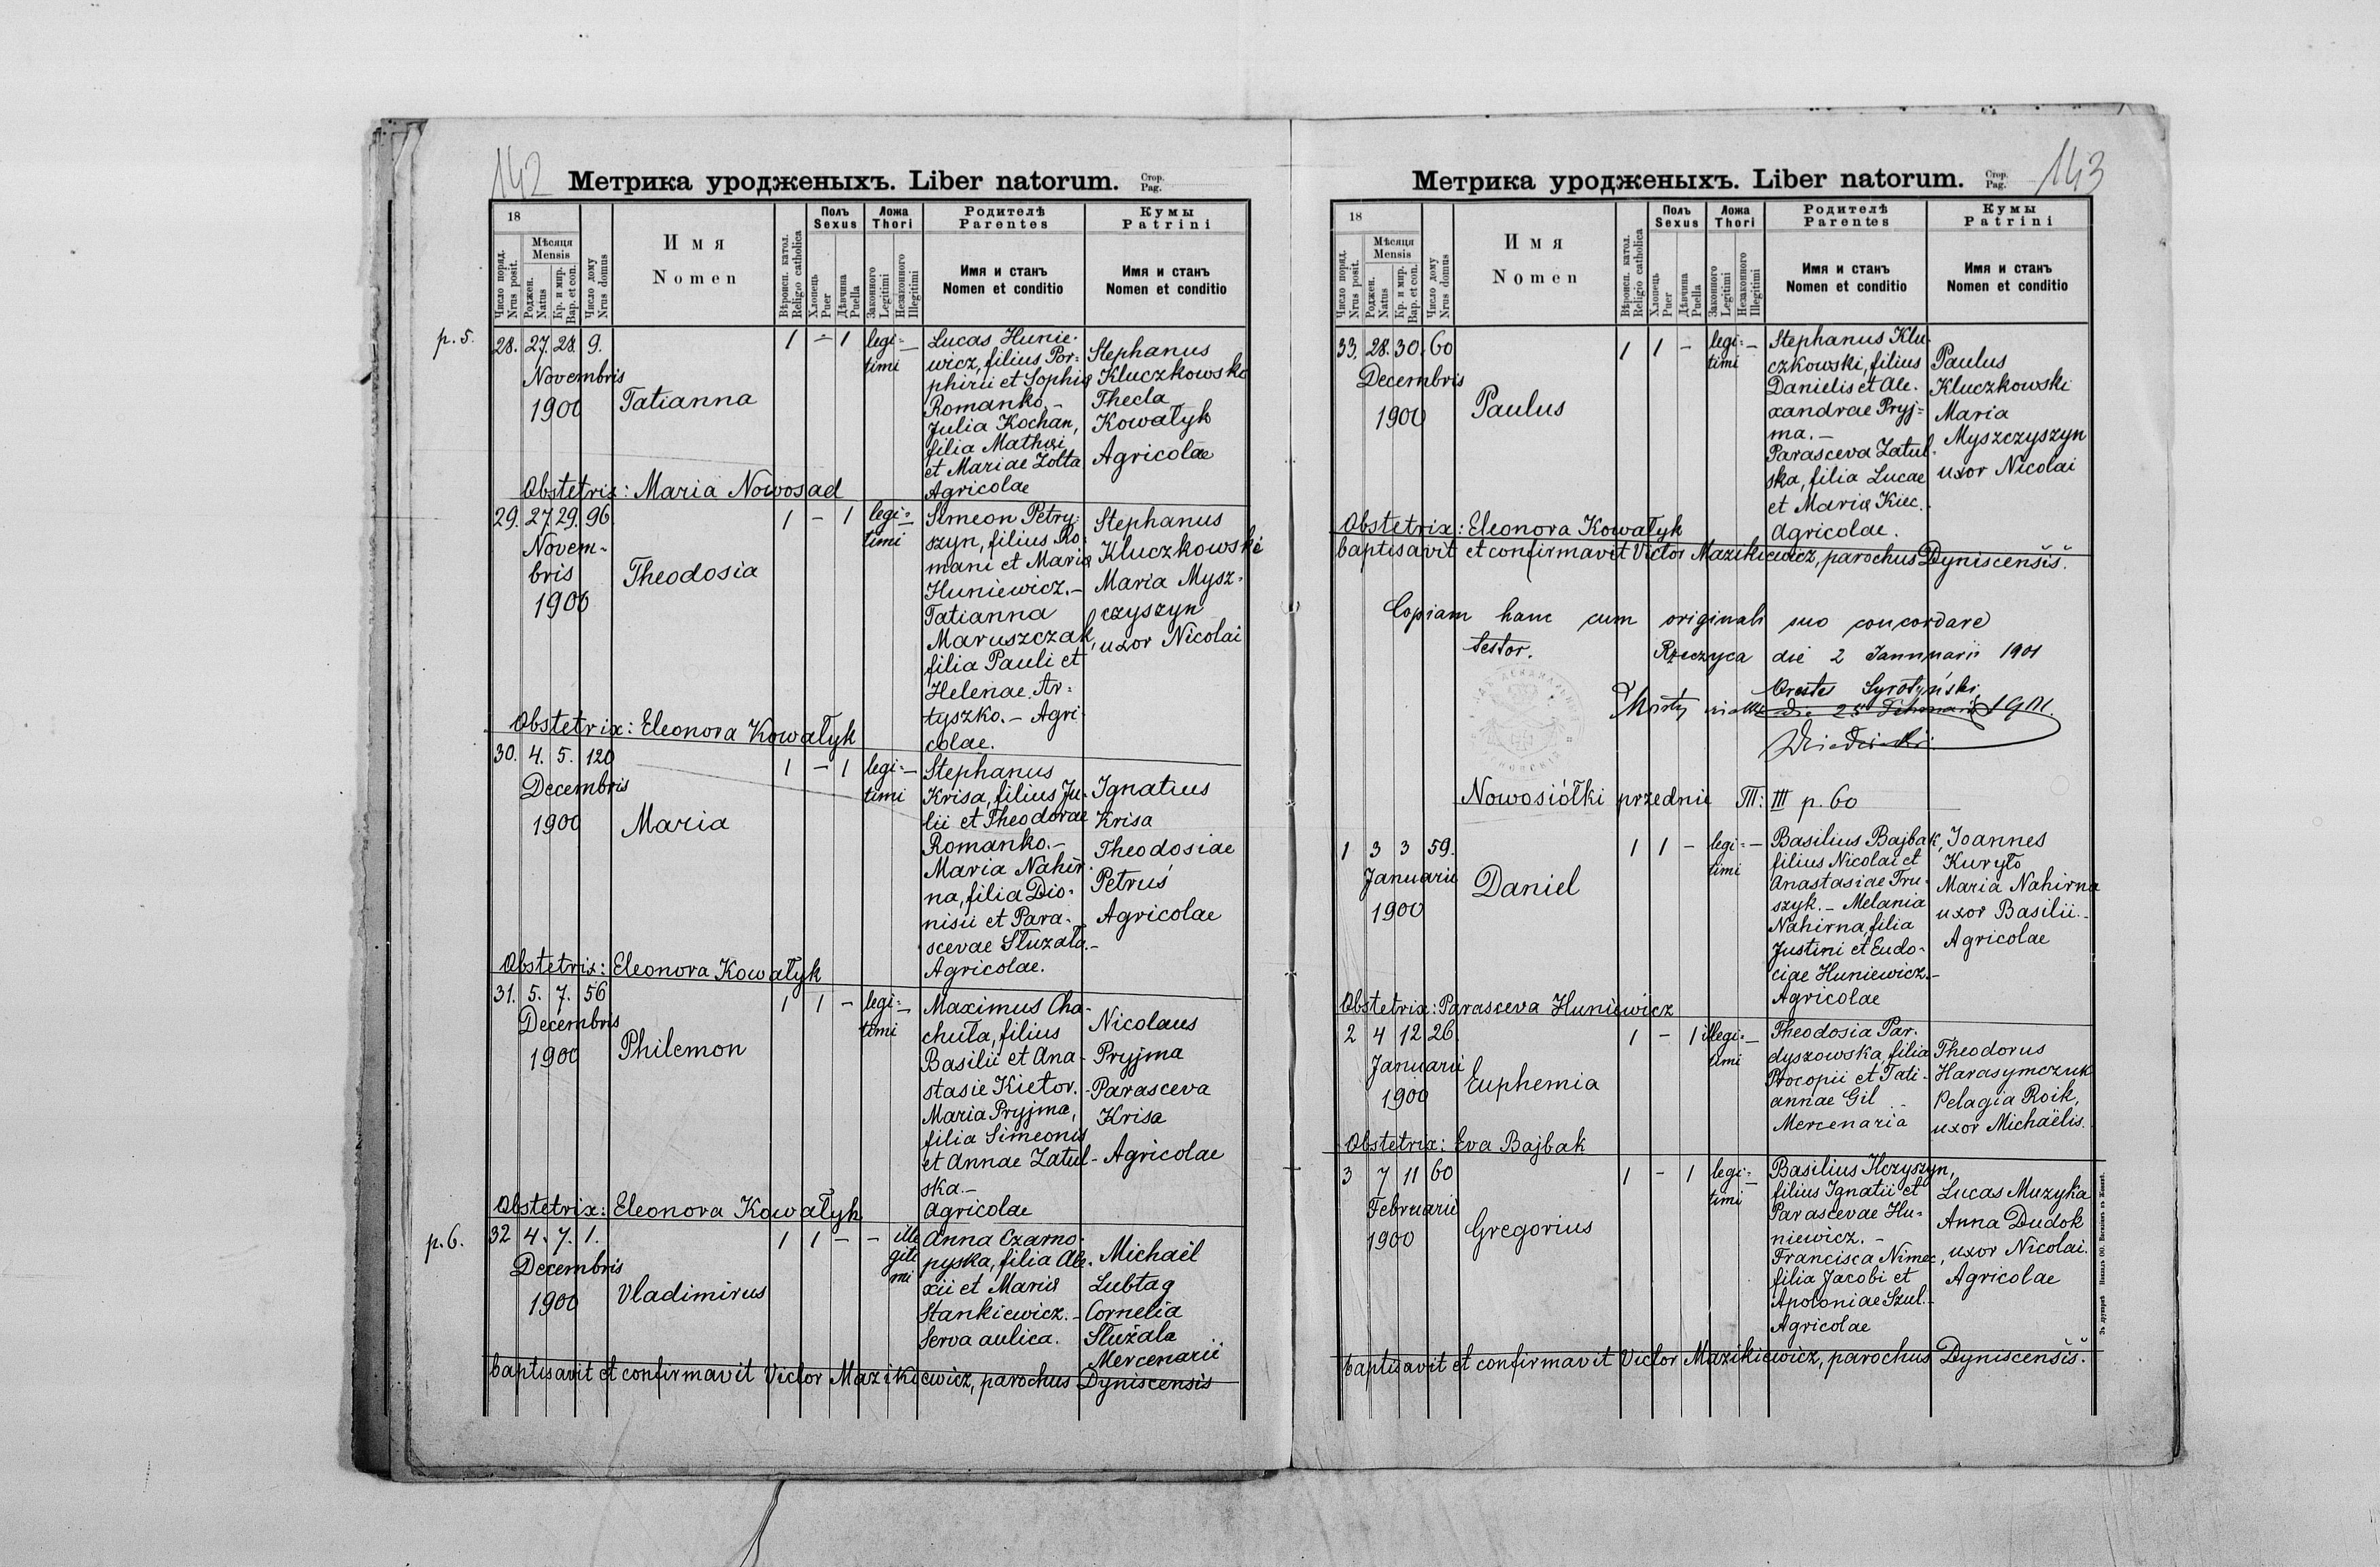 142
Метрика уродженыхъ. Liber natorum. Стор. Pag.
18
Число поряд. Nrus posit.
Мѣсяця Mensis
Роджен. Natus
Кр. и мир. Bap. et con.
Число дому Nrus domus
Имя
Nomen
Вѣроисп. катол. Religio catholica
Полъ Sexus
Хлопець Puer
Дѣвчина Puella
Ложа Thori
Законного Legitimi
Незаконного Illegitimi
Родителѣ
Parentes
Имя и станъ
Nomen et conditio
Кумы
Patrini
Имя и станъ
Nomen et conditio
p. 5.
28. 27. 28. 9.
Novembris
1900
Tatianna
1 - 1 legi=
timi
Lucas Hunie-
wicz, filius Por=
phirii et Sophiæ
Romanko. -
Julia Kochan,
filia Mathæi
et Mariae Zolta
Agricolae
Stephanus
Kluczkowski
Thecla
Kowałyk
Agricolae
Obstetrix: Maria Nowosad
29. 27. 29. 96
Novem-
bris
1900
Theodosia
1 - 1 legi=
timi
Simeon Petry-
szyn, filius Ro-
mani et Mariæ
Huniewicz. -
Tatianna
Maruszczak,
filia Pauli et
Helenae Ar=
tyszko. - Agri-
colae.
Stephanus
Kluczkowski
Maria Mysz-
czyszyn
uxor Nicolai
Obstetrix: Eleonora Kowałyk
30. 4. 5. 120
Decembris
1900
Maria
1 - 1 legi= -
timi
Stephanus
Krisa, filius Ju-
lii et Theodorae
Romanko. -
Maria Nahir-
na, filia Dio-
nisii et Para-
scevae Służała. -
Agricolae.
Ignatius
Krisa
Theodosiae
Petruś
Agricolae
Obstetrix: Eleonora Kowałyk
31. 5. 7. 56
Decembris
1900
Philemon
1 1 - legi=
timi
Maximus Cha-
chuła, filius
Basilii et Ana-
stasie Kietor. -
Maria Pryjma,
filia Simeonis
et Annae Zatul-
ska. -
Agricolae
Nicolaus
Pryjma
Parasceva
Krisa
Agricolae
Obstetrix: Eleonora Kowałyk
p. 6.
32 4. 7. 1.
Decembris
1900
Vladimirus
1 1 - - ille
giti
mi
Anna Czarno-
pyska, filia Ale-
xii et Mariæ
Stankiewicz. -
Serva aulica.
Michaël
Lubtag
Cornelia
Służala
Mercenarii
baptisavit et confirmavit Victor Mazikiewicz, parochus Dyniscensis
143
Метрика уродженыхъ. Liber natorum. Стор. Pag.
18
Число поряд. Nrus posit.
Мѣсяця Mensis
Роджен. Natus
Кр. и мир. Bap. et con.
Число дому Nrus domus
Имя
Nomen
Вѣроисп. катол. Religio catholica
Полъ Sexus
Хлопець Puer
Дѣвчина Puella
Ложа Thori
Законного Legitimi
Незаконного Illegitimi
Родителѣ
Parentes
Имя и станъ
Nomen et conditio
Кумы
Patrini
Имя и станъ
Nomen et conditio
33. 28. 30. 60
Decembris
1900
Paulus
1 1 - legi= -
timi
Stephanus Klu-
czkowski, filius
Danielis et Ale-
xandrae Pryj=
ma. -
Parasceva Zatul-
ska, filia Lucae
et Mariæ Kiec.
Agricolae.
Paulus
Kluczkowski
Maria
Myszczyszyn
uxor Nicolai
Obstetrix: Eleonora Kowałyk
baptisavit et confirmavit Victor Mazikiewicz, parochus Dyniscensis.
Copiam hanc cum originali suo concordare
testor. Rzeczyca die 2 Iannuarii 1901
Orestes Syrotyński
die 25 1901.
Nowosiółki przednie T: III p. 60
1 3 3 59.
Januarii
1900
Daniel
1 1 - legi= -
timi
Basilius Bajbak,
filius Nicolai et
Anastasiae Tru-
szyk. - Melania
Nahirna, filia
Justini et Eudo-
ciae Huniewicz. -
Agricolae
Joannes
Kuryło
Maria Nahirna
uxor Basilii. -
Agricolae
Obstetrix: Parasceva Huniewicz
2 4 12 26.
Januarii
1900
Euphemia
1 - 1 illegi= -
timi
Theodosia Par-
dyszowska, filia
Procopii et Tati-
annae Gil -
Mercenaria
Theodorus
Harasymczuk
Pelagia Roik,
uxor Michaëlis.
Obstetrix: Eva Bajbak
3 7 11 60
Februarii
1900
Gregorius
1 - 1 legi= -
timi
Basilius Ilczyszyn,
filius Ignatii et
Parascevae Hu-
niewicz. -
Francisca Nimec,
filia Jacobi et
Apoloniae Szul. -
Agricolae
Lucas Muzyka
Anna Dudok
uxor Nicolai.
Agricolae
baptisavit et confirmavit Victor Mazikiewicz, parochus Dyniscensis.